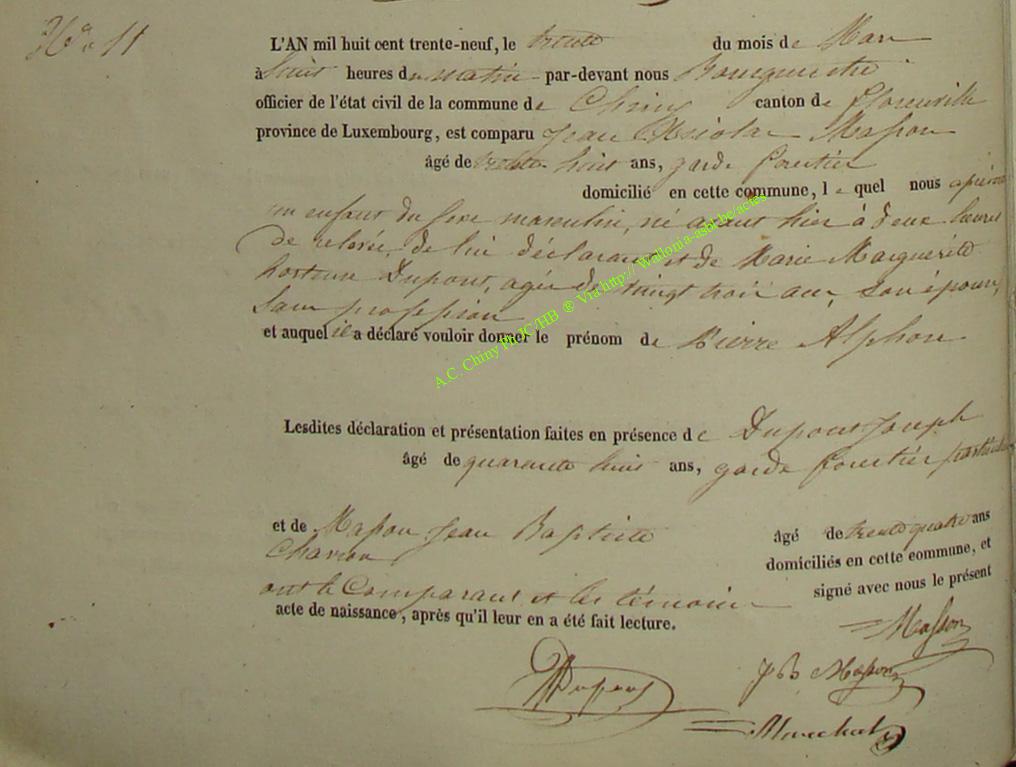 N° 11
L'AN mil huit cent trente-neuf, le trente du mois de Mars
à huit heures du matin par-devant nous Bourguemestre
officier de l'état civil de la commune de Chiny canton de Florenville
province de Luxembourg, est comparu Jean Nicolas Masson
âgé de trente huit ans, garde forestier
domicilié en cette commune, le quel nous a présenté
un enfant du sexe masculin, né avant hier à deux heures
de relevée, de lui déclarant et de Marie Marguerite
hortense Dupont, agée de vingt trois ans, son épouse,
sans profession
et auquel il a déclaré vouloir donner le prénom de Pierre Alphonse
Lesdites déclaration et présentation faites en présence de Dupont Joseph
âgé de quarante huit ans, garde forestier particulier
et de Masson Jean Baptiste âgé de trente quatre ans
Charron domiciliés en cette commune, et
ont le Comparant et les témoins signé avec nous le présent
acte de naissance, après qu'il leur en a été fait lecture.
Masson
JB Masson
Dupont
Marechal
A.C. Chiny Ph JC/HB ® Via http:// Wallonia-asbl.be/actes